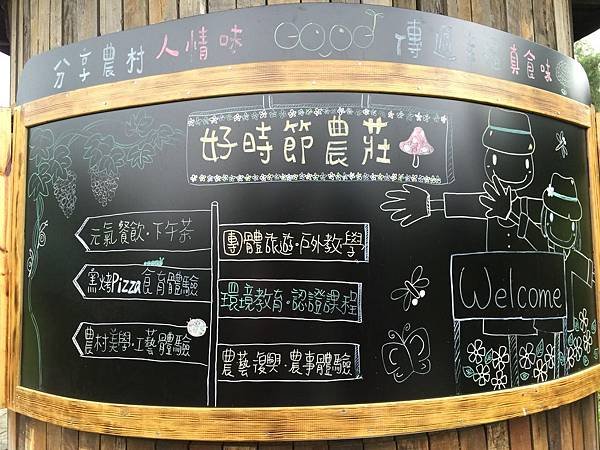 分享農村人情味 GOOD 傳遞 真食味
好時節農莊
元氣餐飲·下午茶
窯烤Pizza食育體驗
農村美學·工藝體驗
團體旅遊·戶外教學
環境教育·認證課程
農藝復興·農事體驗
Welcome